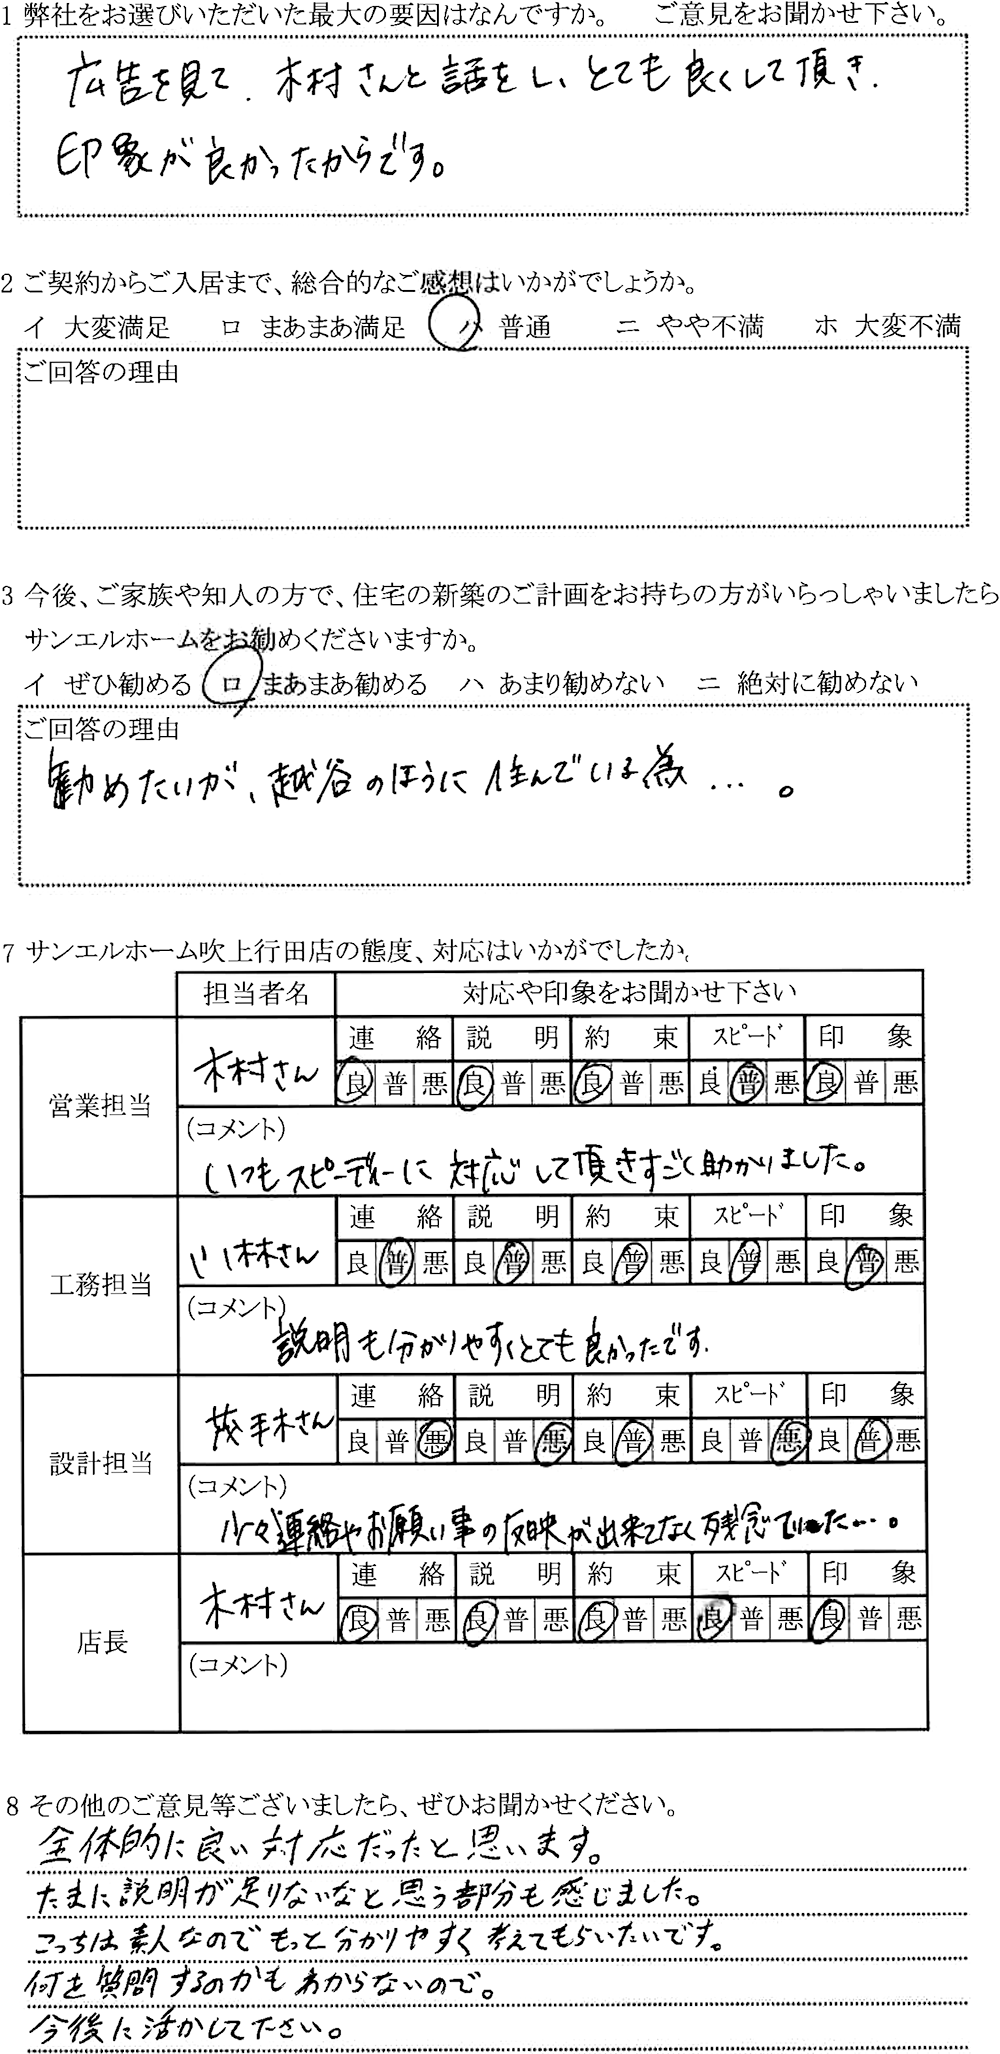 1 弊社をお選びいただいた最大の要因はなんですか。 ご意見をお聞かせ下さい。
広告を見て、木村さんと話をし、とても良くして頂き、
印象が良かったからです。
2 ご契約からご入居まで、総合的なご感想はいかがでしょうか。
イ 大変満足 ロ まあまあ満足 ハ 普通 ニ やや不満 ホ 大変不満
ご回答の理由
3 今後、ご家族や知人の方で、住宅の新築のご計画をお持ちの方がいらっしゃいましたら
サンエルホームをお勧めくださいますか。
イ ぜひ勧める ロ まあまあ勧める ハ あまり勧めない ニ 絶対に勧めない
ご回答の理由
勧めたいが、越谷のほうに住んでいる為…。
7 サンエルホーム吹上行田店の態度、対応はいかがでしたか。
担当者名 対応や印象をお聞かせ下さい
営業担当 木村さん 連絡 説明 約束 スピード 印象
良 普 悪 良 普 悪 良 普 悪 良 普 悪 良 普 悪
(コメント)
いつもスピーディーに対応して頂きすごく助かりました。
工務担当 小林さん 連絡 説明 約束 スピード 印象
良 普 悪 良 普 悪 良 普 悪 良 普 悪 良 普 悪
(コメント)
説明も分かりやすくとても良かったです.
設計担当 茂手木さん 連絡 説明 約束 スピード 印象
良 普 悪 良 普 悪 良 普 悪 良 普 悪 良 普 悪
(コメント)
少々連絡やお願い事の反映が出来てなく残念でした…。
店長 木村さん 連絡 説明 約束 スピード 印象
良 普 悪 良 普 悪 良 普 悪 良 普 悪 良 普 悪
(コメント)
8 その他のご意見等ございましたら、ぜひお聞かせください。
全体的に良い対応だったと思います。
たまに説明が足りないなと思う部分も感じました。
こっちは素人なのでもっと分かりやすく考えてもらいたいです。
何を質問するのかもわからないので。
今後に活かして下さい。